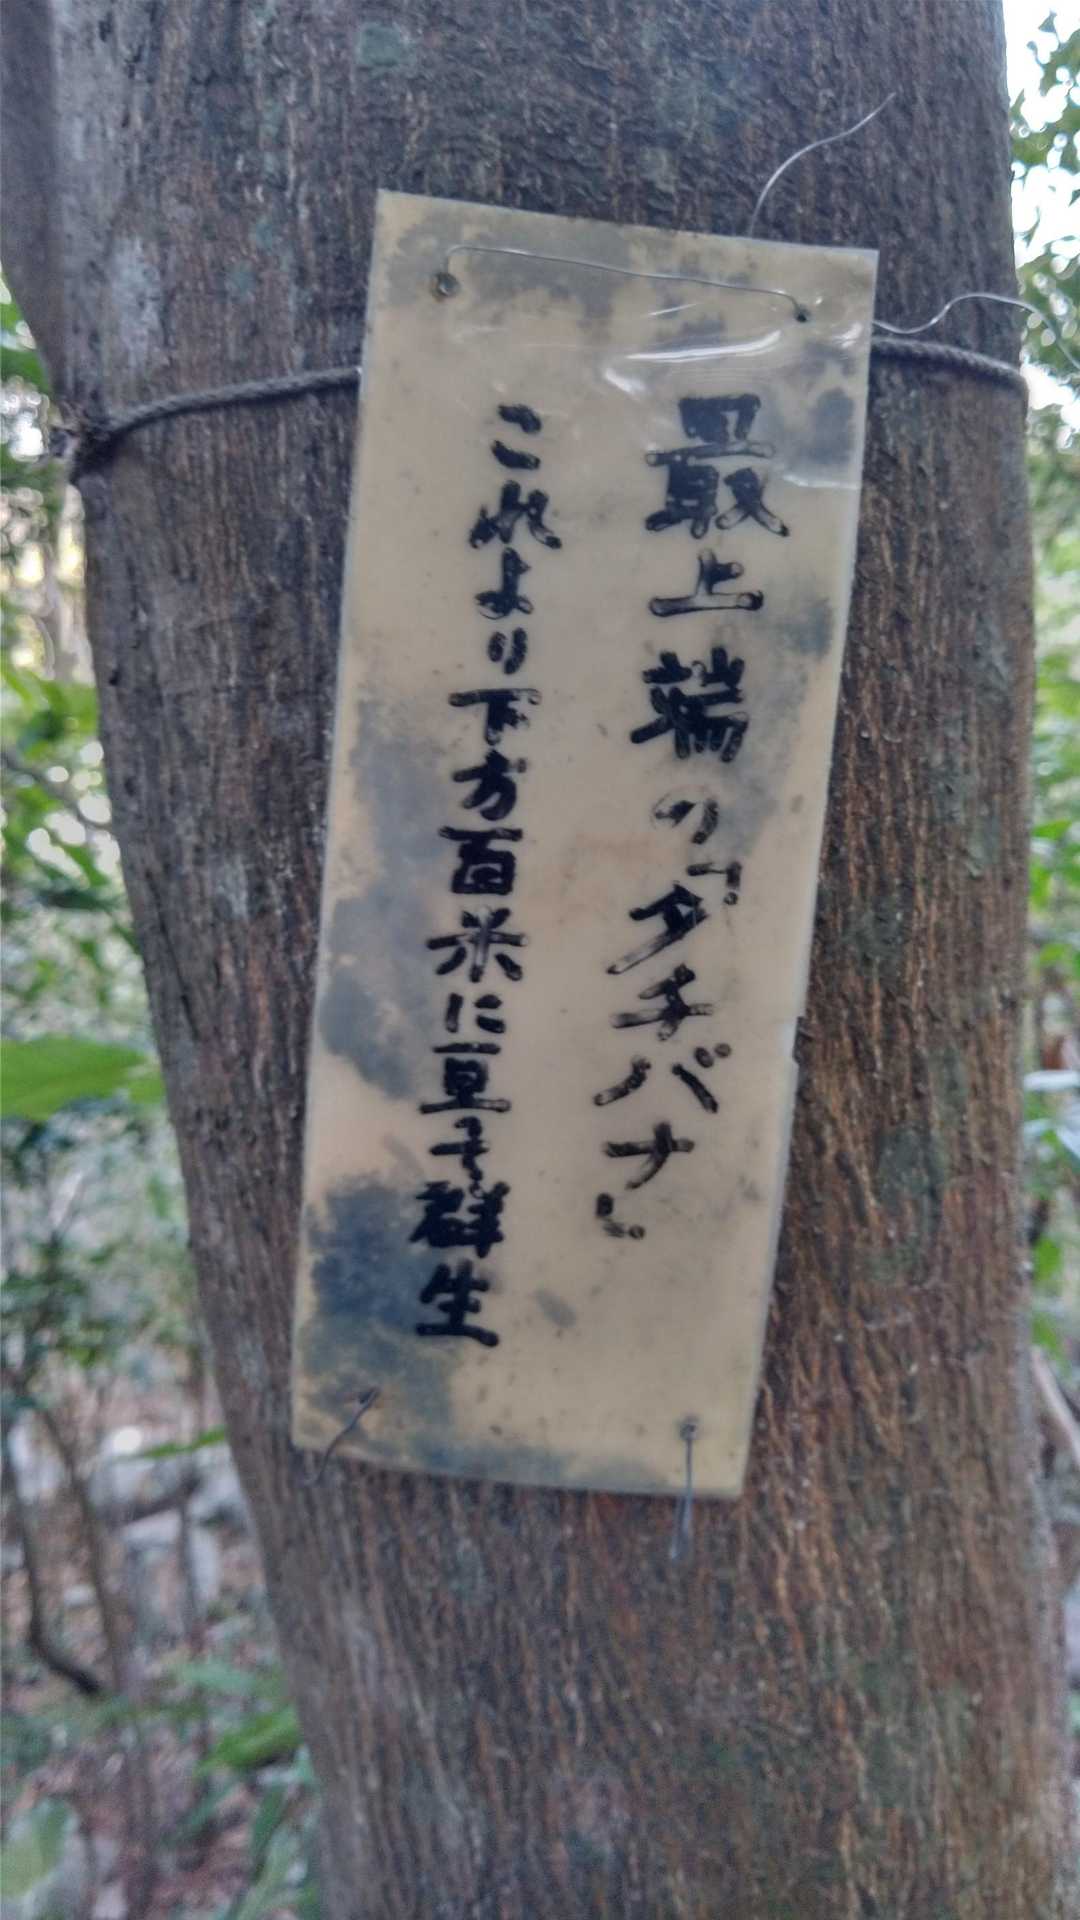 最上端の「タチバナ」
これより下方百米に亘て群生